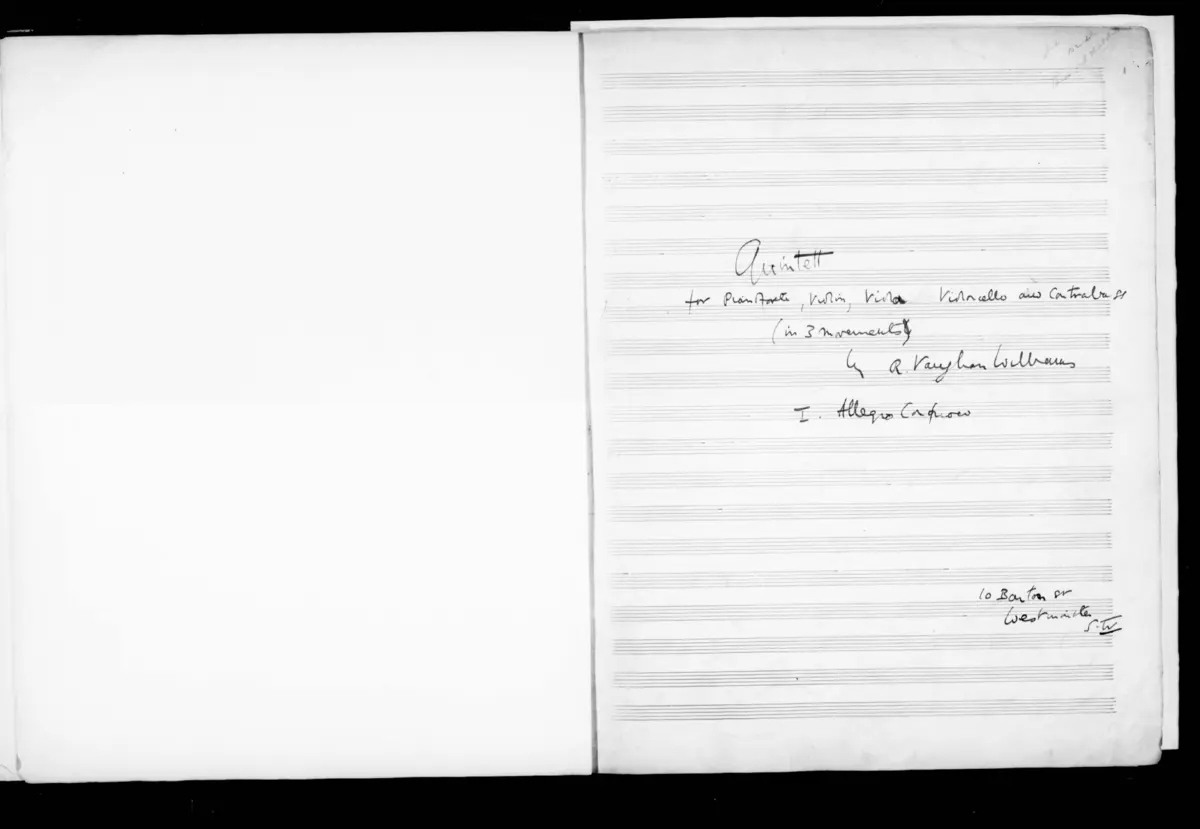 Quintett
for Pianoforte, Violin, Viola Violoncello and Contrabass
(in 3 movements)
by R. Vaughan Williams
I. Allegro Con fuoco
10 Barton St
Westminster
S.W